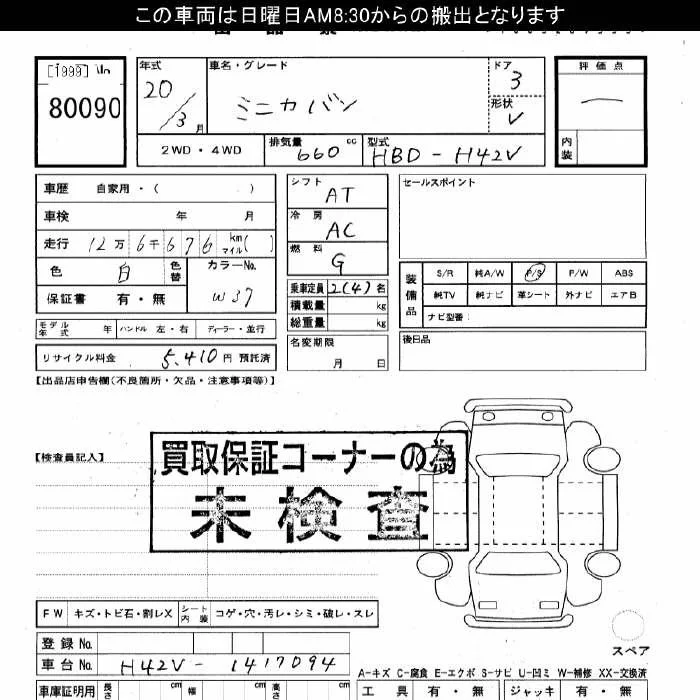 この車両は日曜日AM8:30からの搬出となります
[1999]
80090
年式
20/3月
車名・グレード
ミニカバン
ドア
3
形状
V
評価点
一
内装
2WD・4WD
排気量 660 cc
型式 HBD-H42V
車歴 自家用・( )
車検 年 月
走行 12万6千676 km マイル( )
色 白 色替
カラーNo. W37
保証書 有・無
モデル年式 年 ハンドル 左・右 ディーラー・並行
リサイクル料金 5,410円 預託済
シフト AT
冷房 AC
燃料 G
乗車定員 2(4)名
積載量 kg
総重量 kg
名変期限
月 日
セールスポイント
装備品
S/R 純A/W P/S P/W ABS
純TV 純ナビ 革シート 外ナビ エアB
ナビ型番:
後日品
【出品店申告欄(不良箇所・欠品・注意事項等)】
【検査員記入】
買取保証コーナーの為
未検査
FW キズ・トビ石・割レX シート内装 コゲ・穴・汚レ・シミ・破レ・スレ
スペア
登録No.
車台No. H42V-1417094
A-キズ C-腐食 E-エクボ S-サビ U-凹ミ W-補修 XX-交換済
車庫証明用 長さ cm 幅 cm 高さ cm
工具 有・無 ジャッキ 有・無